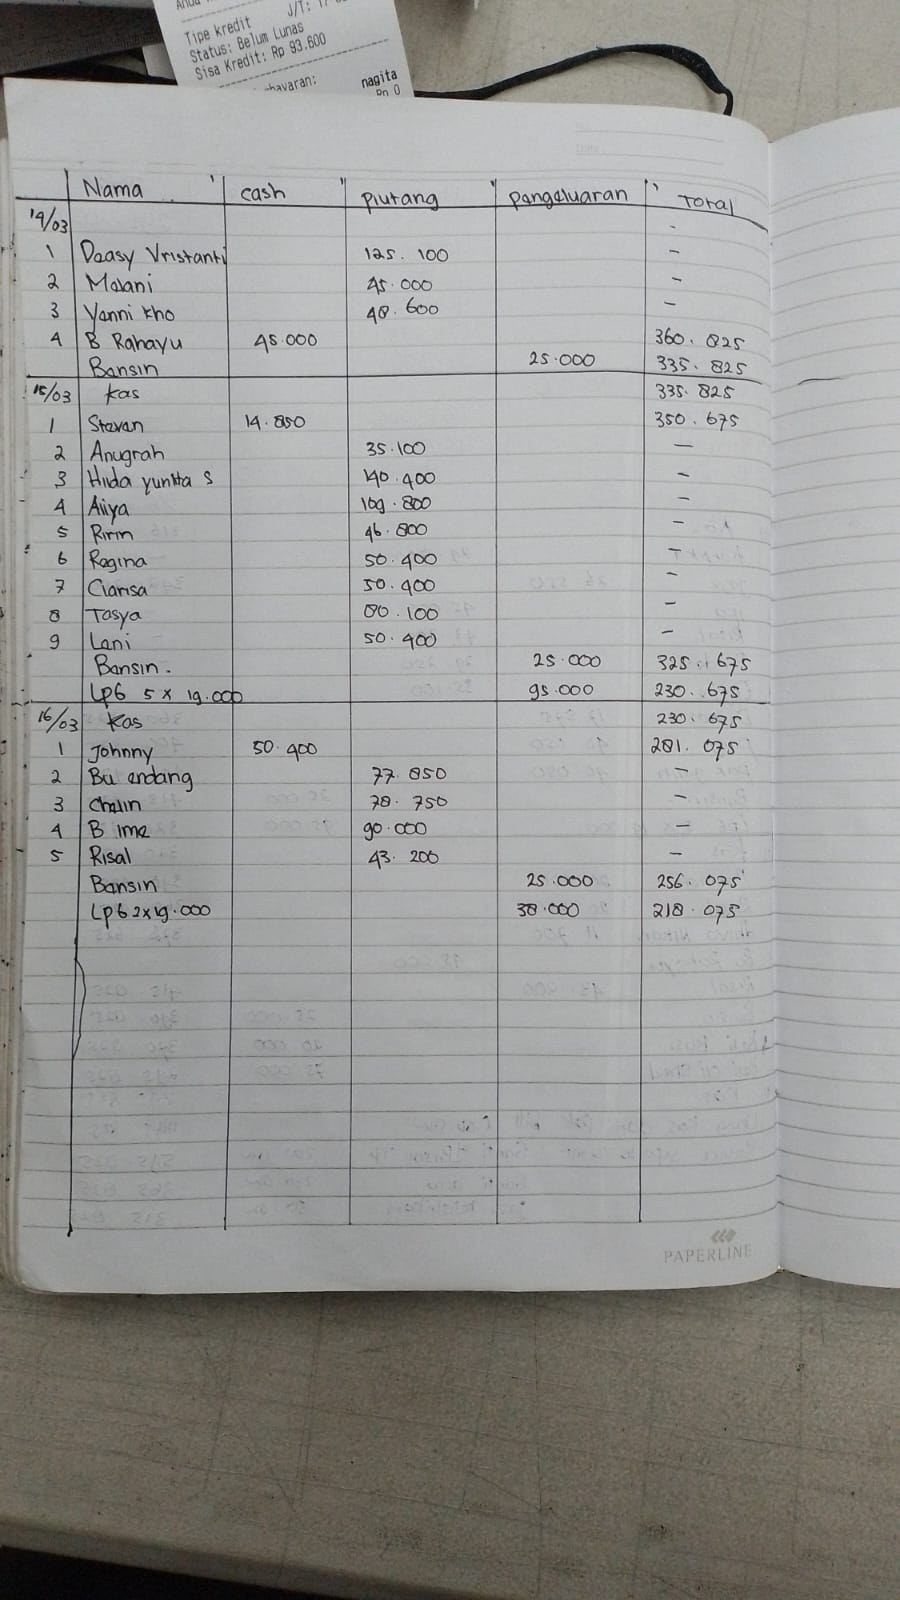 Tipe kredit J/T: 17
Status: Belum Lunas
Sisa Kredit: Rp 93.600
nagita
Rp 0
Nama cash Piutang Pengeluaran Total
14/03 -
1 Deasy Vristanti 125.100 -
2 Melani 45.000 -
3 Yenni kho 48.600 -
4 B Rahayu 45.000 360.825
Bensin 25.000 335.825
15/03 kas 335.825
1 Stevan 14.850 350.675
2 Anugrah 35.100 -
3 Hilda yunita S 140.400 -
4 Aliya 109.800 -
5 Ririn 46.800 -
6 Regina 50.400 -
7 Clarisa 50.400 -
8 Tasya 80.100 -
9 Leni 50.400 -
Bensin. 25.000 325.675
LPG 5 x 19.000 95.000 230.675
16/03 Kas 230.675
1 Johnny 50.400 281.075
2 Bu endang 77.850 -
3 Chelin 78.750 -
4 B ime 90.000 -
5 Risal 43.200 -
Bensin 25.000 256.075
LPG 2x19.000 38.000 218.075
PAPERLINE